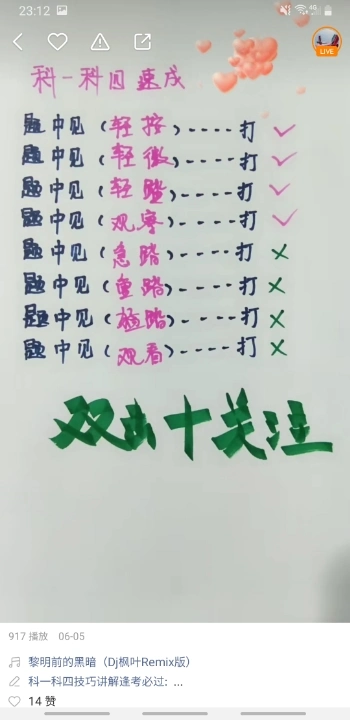 23:12
LIVE
科一科目速成
题中见(轻按)----打✓
题中见(轻微)----打✓
题中见(轻踏)----打✓
题中见(观察)----打✓
题中见(急踏)----打×
题中见(重踏)----打×
题中见(猛踏)----打×
题中见(观看)----打×
双击十关注
917 播放 06-05
黎明前的黑暗（Dj枫叶Remix版）
科一科四技巧讲解逢考必过: ...
14 赞